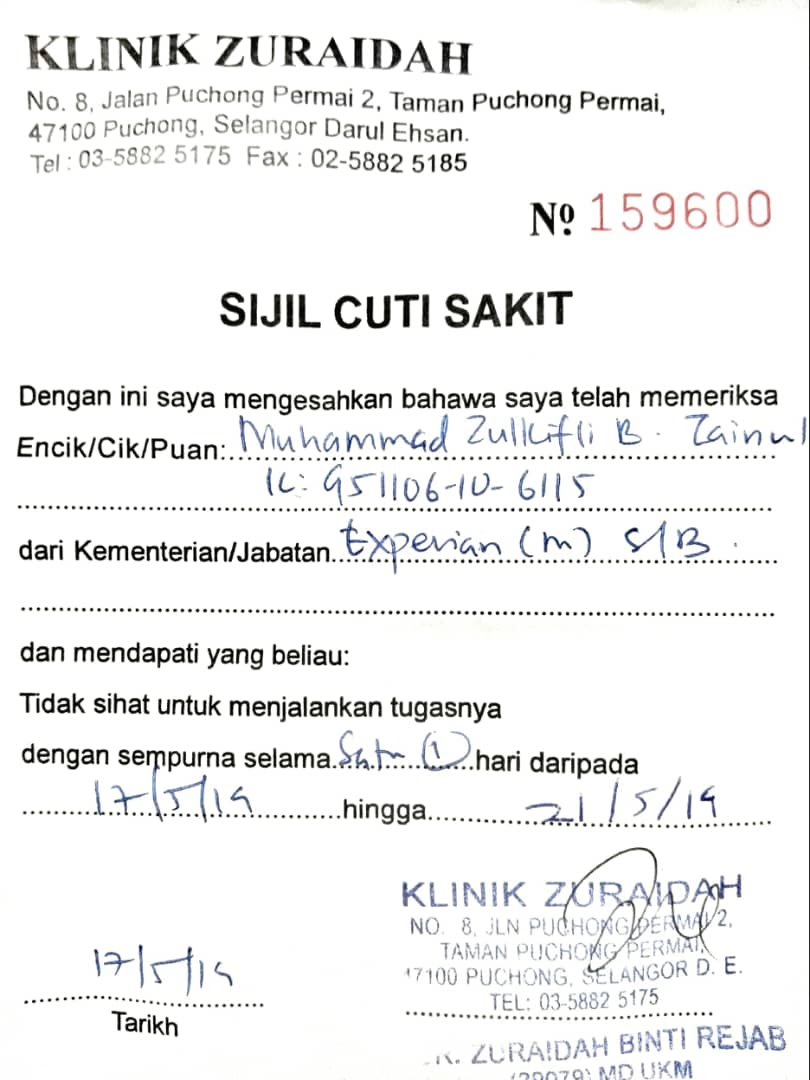 KLINIK ZURAIDAH
No. 8, Jalan Puchong Permai 2, Taman Puchong Permai,
47100 Puchong, Selangor Darul Ehsan.
Tel : 03-5882 5175 Fax : 02-5882 5185
Nº 159600
SIJIL CUTI SAKIT
Dengan ini saya mengesahkan bahawa saya telah memeriksa
Encik/Cik/Puan: Muhammad Zulkifli B. Zainul
IC: 951106-10-6115
dari Kementerian/Jabatan Experian (m) S/B.
dan mendapati yang beliau:
Tidak sihat untuk menjalankan tugasnya
dengan sempurna selama Satu (1) hari daripada
17/5/19 hingga 21/5/19
KLINIK ZURAIDAH
NO. 8, JLN PUCHONG PERMAI 2,
TAMAN PUCHONG PERMAI,
47100 PUCHONG, SELANGOR D. E.
TEL: 03-5882 5175
17/5/19
Tarikh
R. ZURAIDAH BINTI REJAB
MD UKM